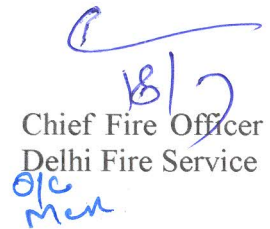 18/7
Chief Fire Officer
Delhi Fire Service
O/C